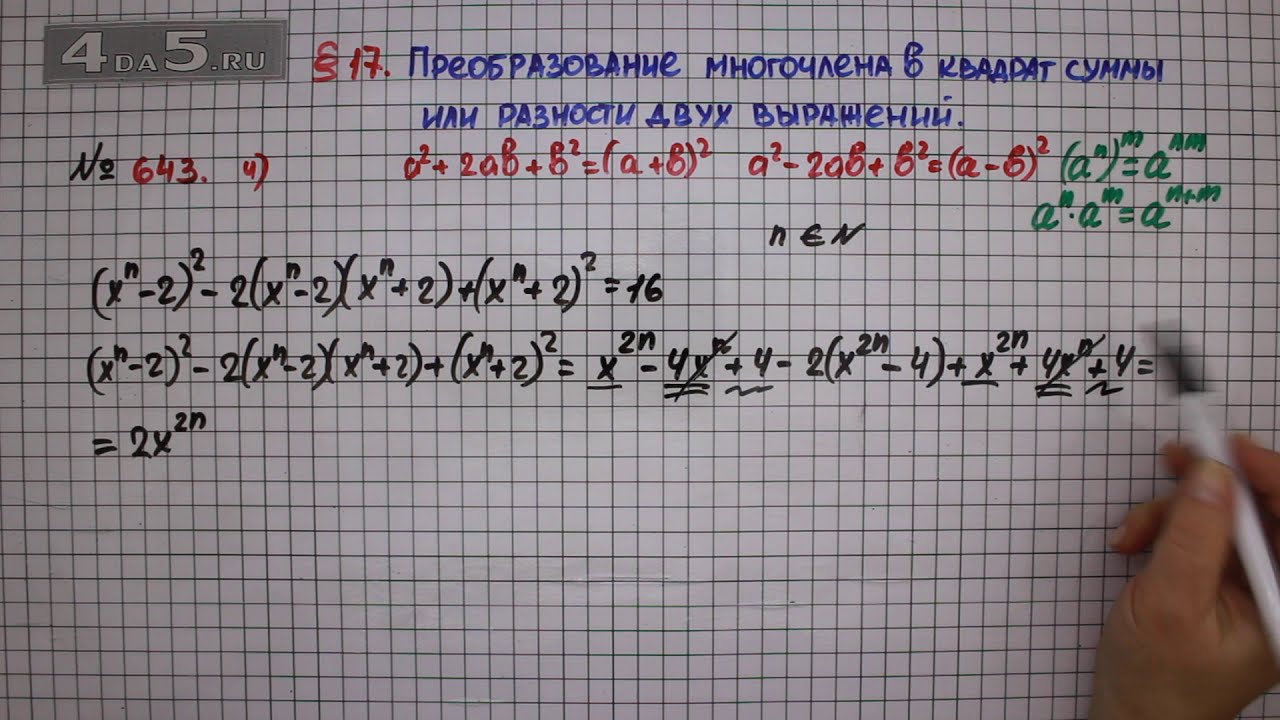 4DA5.RU
§ 17. Преобразование многочлена в квадрат суммы
или разности двух выражений.
№ 643. 4) a² + 2ab + b² = (a + b)² a² - 2ab + b² = (a - b)² (aⁿ)ᵐ = aⁿᵐ
aⁿ · aᵐ = aⁿ⁺ᵐ
n ∈ N
(xⁿ - 2)² - 2(xⁿ - 2)(xⁿ + 2) + (xⁿ + 2)² = 16
(xⁿ - 2)² - 2(xⁿ - 2)(xⁿ + 2) + (xⁿ + 2)² = x²ⁿ - 4xⁿ + 4 - 2(x²ⁿ - 4) + x²ⁿ + 4xⁿ + 4 =
= 2x²ⁿ